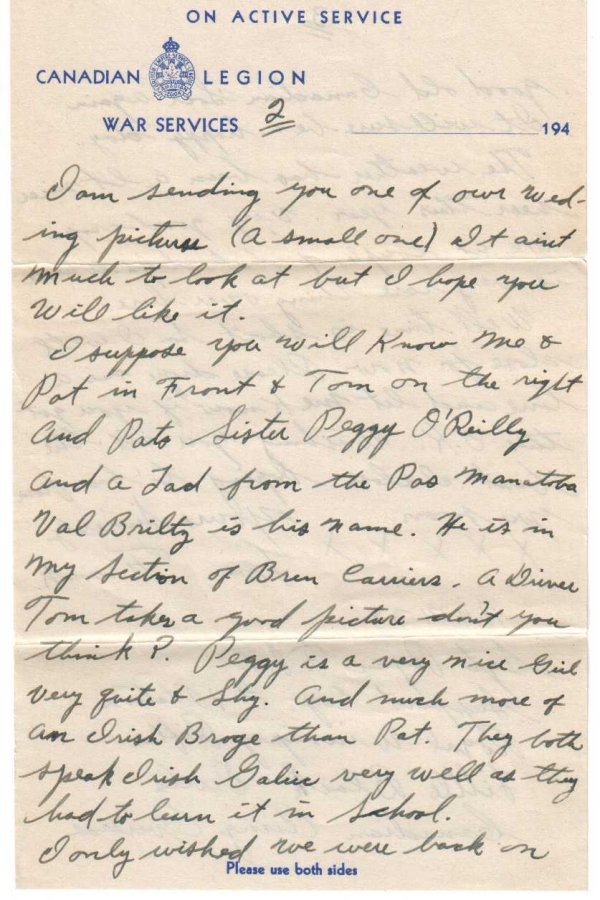 ON ACTIVE SERVICE
CANADIAN LEGION
WAR SERVICES 2 194
I am sending you one of our wed-
ing picture (A small one) It aint
much to look at but I hope you
Will like it.
I suppose you will Know Me &
Pat in Front & Tom on the right
And Pats Sister Peggy O'Reilly
And a Lad from the Pas Manatoba
Val Briltz is his name. He is in
My Section of Bren Carriers. A Driver
Tom takes a good picture don't you
think?. Peggy is a very nice Girl
very quite & Shy. And much more of
An Irish Broge than Pat. They both
speak Irish Galic very well as they
had to learn it in School.
I only wished we were back on
Please use both sides